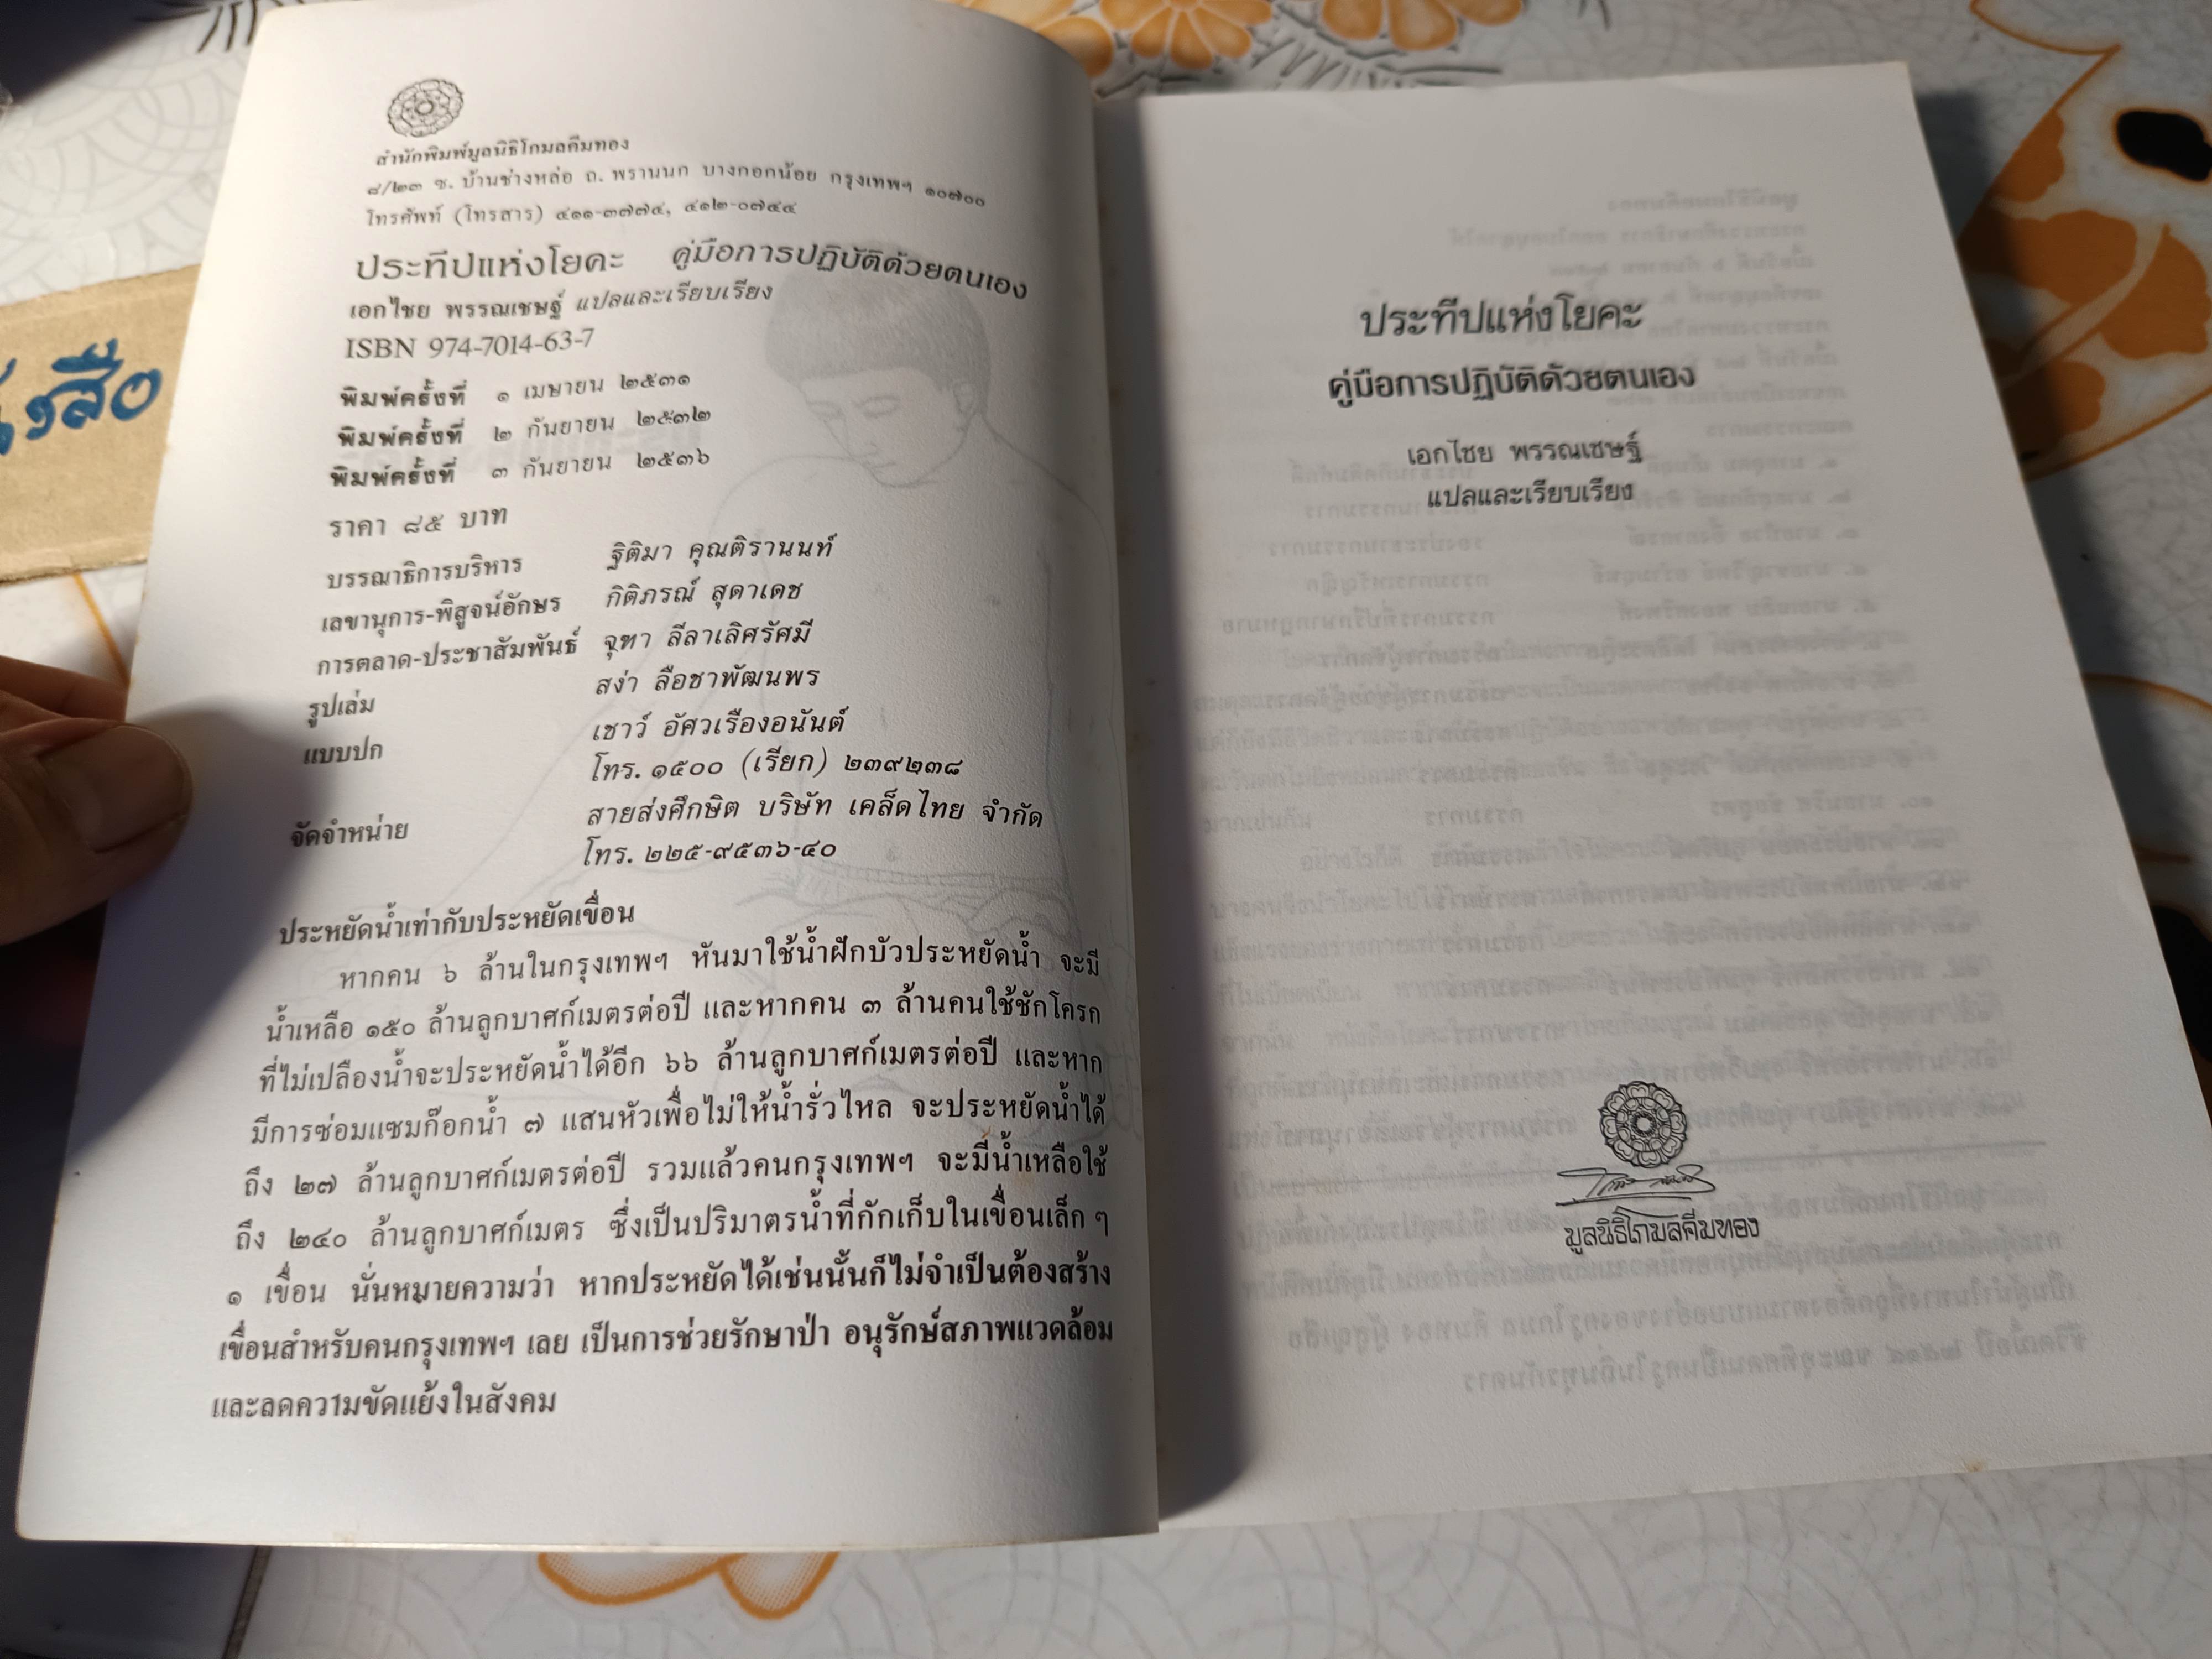 สำนักพิมพ์มูลนิธิโกมลคีมทอง
๘/๒๓ ซ. บ้านช่างหล่อ ถ. พรานนก บางกอกน้อย กรุงเทพฯ ๑๐๗๐๐
โทรศัพท์ (โทรสาร) ๔๑๑-๓๗๗๔, ๔๑๒-๐๗๔๔
ประทีปแห่งโยคะ คู่มือการปฏิบัติด้วยตนเอง
เอกไชย พรรณเชษฐ์ แปลและเรียบเรียง
ISBN 974-7014-63-7
พิมพ์ครั้งที่ ๑ เมษายน ๒๕๓๑
พิมพ์ครั้งที่ ๒ กันยายน ๒๕๓๒
พิมพ์ครั้งที่ ๓ กันยายน ๒๕๓๖
ราคา ๘๕ บาท
บรรณาธิการบริหาร ฐิติมา คุณติรานนท์
เลขานุการ-พิสูจน์อักษร กิติภรณ์ สุดาเดช
การตลาด-ประชาสัมพันธ์ จุฑา ลีลาเลิศรัศมี
รูปเล่ม สง่า ลือชาพัฒนพร
แบบปก เชาว์ อัศวเรืองอนันต์
โทร. ๑๕๐๐ (เรียก) ๒๓๙๒๓๘
จัดจำหน่าย สายส่งศึกษิต บริษัท เคล็ดไทย จำกัด
โทร. ๒๒๕-๙๕๓๖-๔๐
ประหยัดน้ำเท่ากับประหยัดเขื่อน
หากคน ๖ ล้านในกรุงเทพฯ หันมาใช้น้ำฝักบัวประหยัดน้ำ จะมี
น้ำเหลือ ๑๕๐ ล้านลูกบาศก์เมตรต่อปี และหากคน ๓ ล้านคนใช้ชักโครก
ที่ไม่เปลืองน้ำจะประหยัดน้ำได้อีก ๖๖ ล้านลูกบาศก์เมตรต่อปี และหาก
มีการซ่อมแซมก๊อกน้ำ ๗ แสนหัวเพื่อไม่ให้น้ำรั่วไหล จะประหยัดน้ำได้
ถึง ๒๗ ล้านลูกบาศก์เมตรต่อปี รวมแล้วคนกรุงเทพฯ จะมีน้ำเหลือใช้
ถึง ๒๔๐ ล้านลูกบาศก์เมตร ซึ่งเป็นปริมาตรน้ำที่กักเก็บในเขื่อนเล็ก ๆ
๑ เขื่อน นั่นหมายความว่า หากประหยัดได้เช่นนั้นก็ไม่จำเป็นต้องสร้าง
เขื่อนสำหรับคนกรุงเทพฯ เลย เป็นการช่วยรักษาป่า อนุรักษ์สภาพแวดล้อม
และลดความขัดแย้งในสังคม
ประทีปแห่งโยคะ
คู่มือการปฏิบัติด้วยตนเอง
เอกไชย พรรณเชษฐ์
แปลและเรียบเรียง
มูลนิธิโกมลคีมทอง